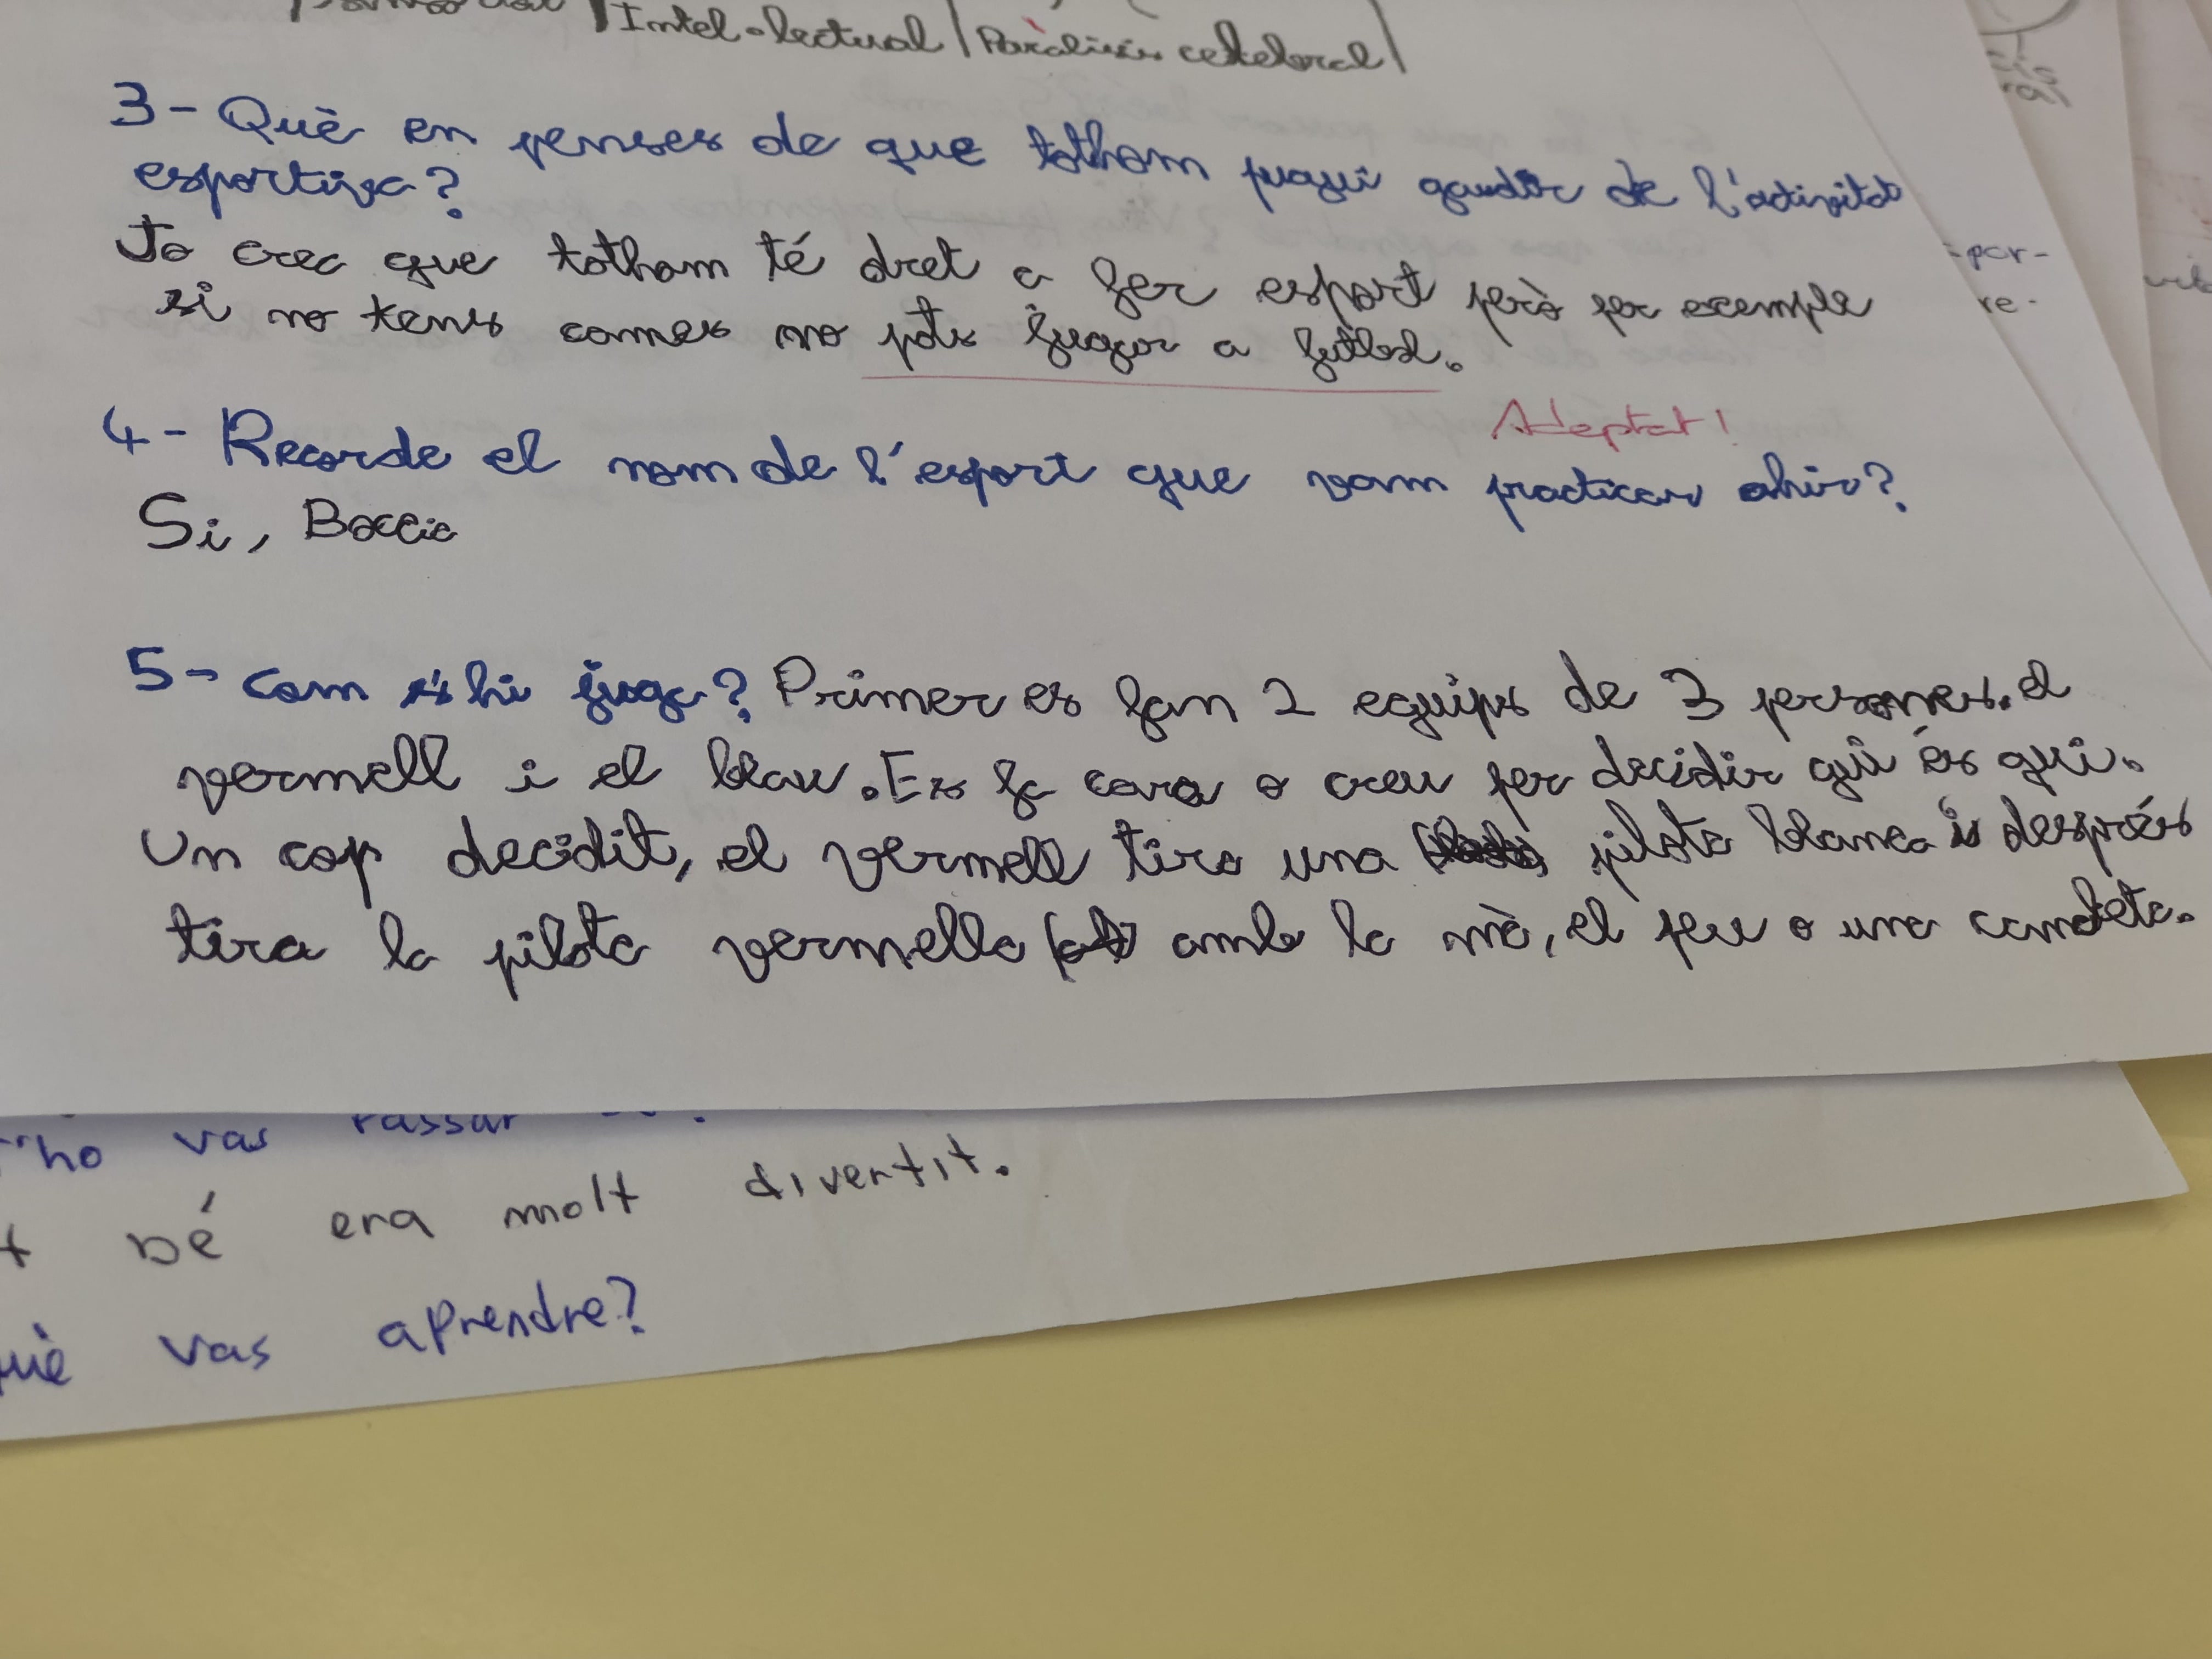 Intel·lectual | Paràlisis cerebral |
3- Què en penses de que tothom pugui gaudir de l'activitat
esportiva?
Jo crec que tothom té dret a fer esport però per exemple
si no tens cames no pots jugar a futbol.
Adaptat!
4- Recorde el nom de l'esport que vam practicar ahir?
Si, Boccia
5- Com s'hi juga? Primer es fan 2 equips de 3 persones. el
vermell i el blau. Es fa cara o creu per decidir qui és qui.
Un cop decidit, el vermell tira una pilota blanca i després
tira la pilota vermella amb la mà, el peu o una candeta.
-por-
re-
n'ho vas passar
bé era molt divertit.
què vas aprendre?